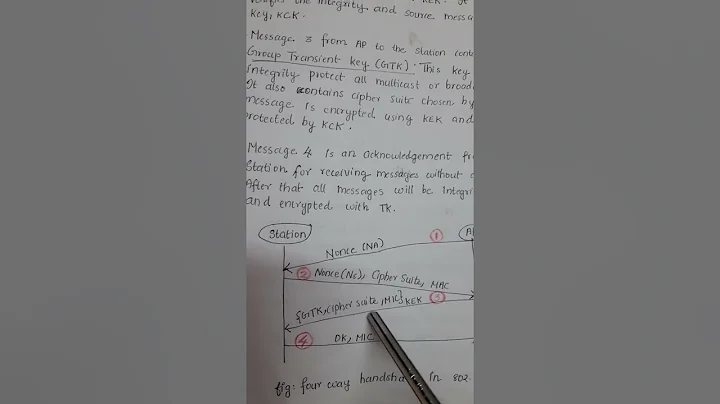 the integrity and source messa
key, KCK.
Message 3 from AP to the station cont
Group Transient key (GTK). This key
integrity protect all multicast or broad
It also contains cipher suite chosen by
message is encrypted using KEK and
protected by KCK.
Message 4 is an acknowledgement fr
Station for receiving messages without
After that all messages will be integri
and encrypted with TK.
Station
A
Nonce (NA)
①
② Nonce (Ns), Cipher Suite, MAC
{GTK, cipher suite, MIC}KEK ③
④ OK, MIC
fig: four way handsha In 802.